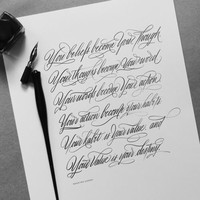 Your beliefs become your thought
Your thoughts become your word
Your words become your action
Your action become your habits
Your habit is your value and
Your value is your destiny